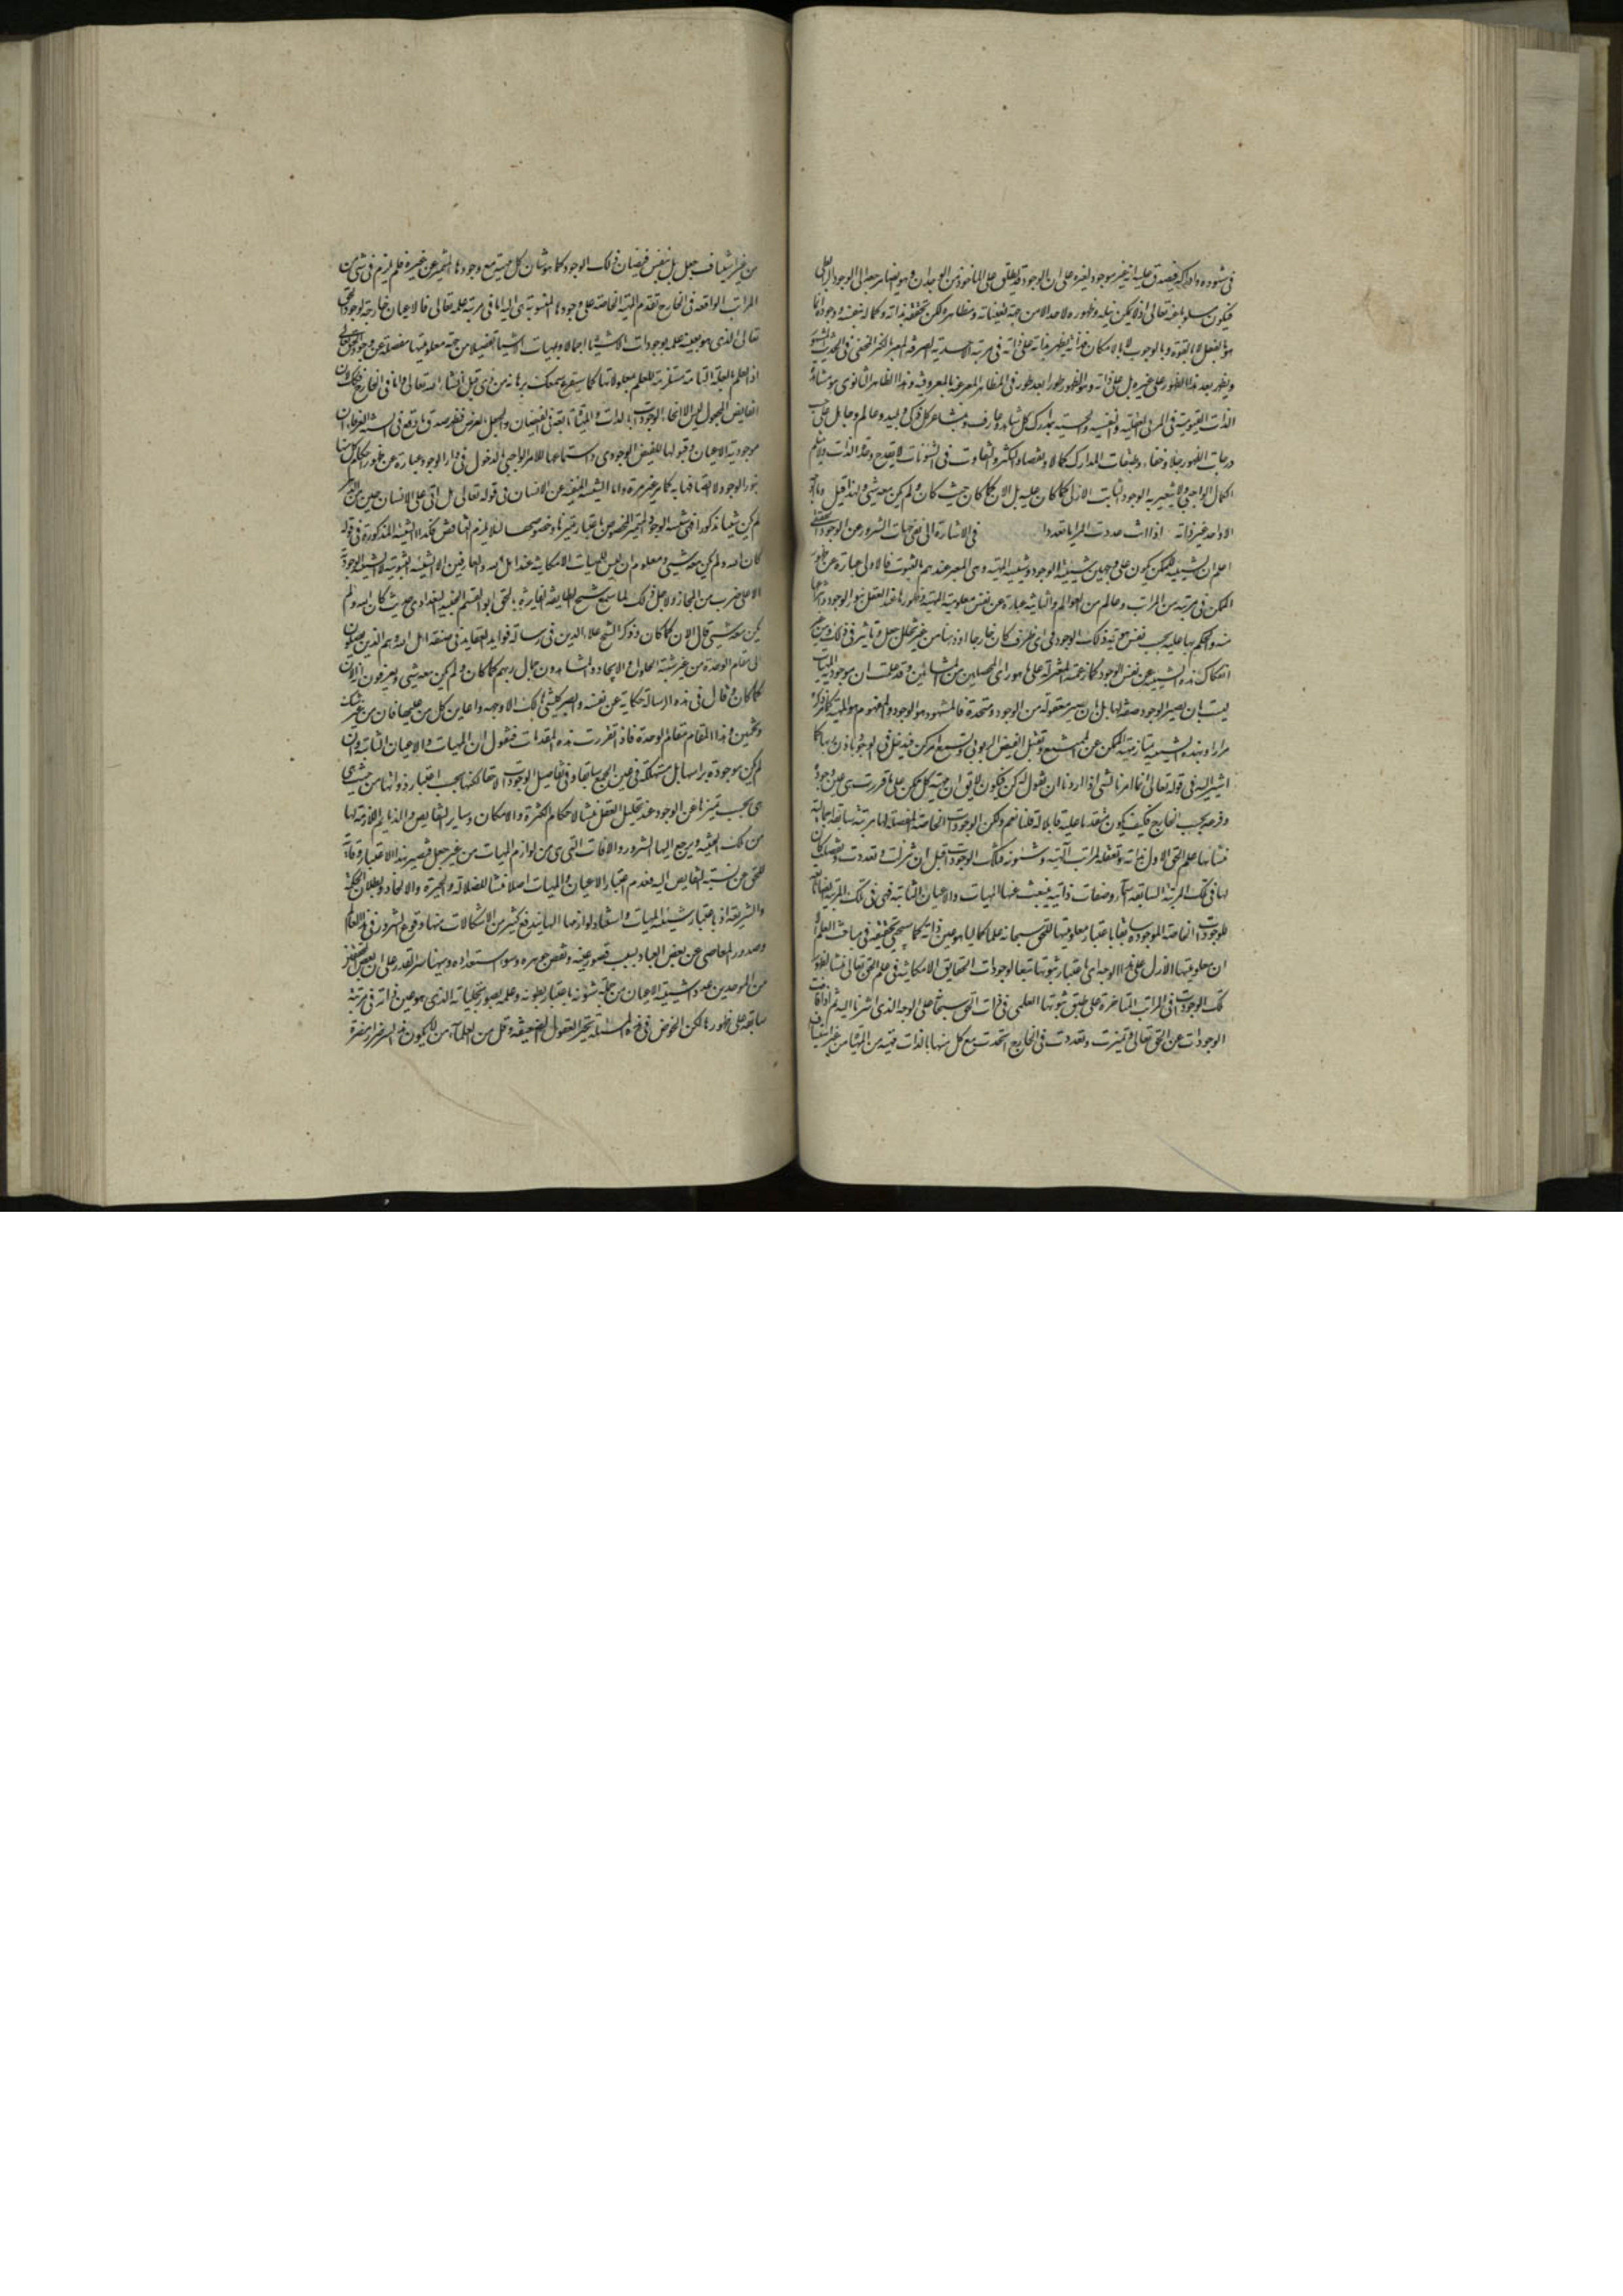 في شهوده وادراكه فيصدق عليه انه غير موجود لغيره على ان الوجود قد يطلق على المأخوذ من الوجدان وهو ايضا يرجع الى الوجود الرابطي
فيكون مسلوبا عنه تعالى اذ لا يمكن نيله وظهوره لاحد الا من جهة تعيناته ومظاهره لكن تحققه بذاته وكماله بنفسه ووجوده انما
هو بالفعل لا بالقوة وبالوجوب لا بالامكان فذاته يظهر بذاته على ذاته في مرتبة الاحدية الصرفة المعبر بالكنز المخفي في الحديث المشهور
ويظهر بعد هذا الظهور على غيره بل على ذاته وهو الظهور طورا بعد طور في المظاهر المعبر عنه بالمعروفية وهذا الظاهر الثانوي هو مشاهدة
الذات القيومية في المرائي العقلية والنفسية والحسية بمدارك كل شاهد وعارف وبمشاعر كل ذكي وبليد وعالم وجاهل على حسب
درجات الظهور جلاء وخفاء وطبقات المدارك كمالا ونقصا والتكثر والتفاوت في الشئونات لا يقدح وحدة الذات ولا ينثلم
الكمال الواجبي ولا يتغير به الوجود الثابت الازلي كما كان عليه بل الان كما كان حيث كان ولم يكن معه شيء ولهذا قيل وما الوجه
الا واحد غير انه اذا انت عددت المرايا تعددا في الاشارة الى نفي جهات الشرور عن الوجود الحقيقي
اعلم ان الشيئية للممكن يكون على وجهين شيئية الوجود وشيئية المهية وهي المعبر عندهم بالثبوت فالاولى عبارة عن ظهور
الممكن في مرتبة من المراتب وعالم من العوالم والثانية عبارة عن نفس معلومية المهية وظهورها عند العقل بنور الوجود وانتزاعها
منه والحكم بها عليه بحسب نفس هوية ذلك الوجود في اي ظرف كان خارجا او ذهنا من غير تخلل جعل وتاثير في ذلك ومن غير
انفكاك هذه الشيئية عن نفس الوجود كما زعمته المعتزلة على ما هو راي المحصلين من المشائين وقد علمت ان موجودية المهيات
ليست بان يصير الوجود صفة لها بل بان يصير معقولة من الوجود ومتحدة به فالمشهود هو الوجود والمفهوم هو المهية كما مر ذكره
مرارا وبهذه الشيئية يمتاز مهية الممكن عن الممتنع وتقبل الفيض الربوبي وتسمع امر كن فيدخل في الوجود باذن ربها كما
اشير اليه في قوله تعالى انما امرنا لشيء اذا اردناه ان نقول له كن فيكون لا يقال ان مهية كل ممكن على ما قررت هي عين وجوده
وفرعه بحسب الخارج فكيف يكون متقدما عليه قابلا له قلنا نعم ولكن الوجودات الخاصة المفصلة لها مرتبة سابقة اجمالية
منشأها علم الحق الاول بذاته وتعقله لمراتب الهيته وشئونه فتلك الوجودات قبل ان تنزلت وتعددت وتفصلت كان
لها في تلك المرتبة السابقة اسماء وصفات ذاتية ينبعث عنها المهيات والاعيان الثابتة فهي في تلك المرتبة ايضا تابعة
للوجودات الخاصة الموجودة سابقا باعتبار معلوميتها للحق سبحانه علما كماليا هو عين ذاته كما سيجيء تحقيقه في مباحث العلم
ان معلوميتها في الازل على هذا الوجه اي باعتبار ثبوتها تبعا لوجودات الحقايق الامكانية في علم الحق تعالى منشأ لظهور
تلك الوجودات في المراتب المتاخرة على طبق ثبوتها العلمي في ذات الحق سبحانه على الوجه الذي اشرنا اليه ثم اذا فاضت
الوجودات عن الحق تعالى وتميزت وتعددت في الخارج اتحدت مع كل منها بالذات مهية من المهيات من غير استيناف
من غير استيناف جعل بل بنفس فيضان ذلك الوجود كما هو شان كل مهية مع وجودها المتميز عن غيره فلم يلزم في شيء من
المراتب الواقعة في الخارج تقدم المهية الخاصة على وجودها المنسوبة هي اليه اما في مرتبة علمه تعالى فالاعيان خارجة لوجود الحق
تعالى الذي هو بعينه علمه بوجودات الاشياء اجمالا وبمهيات الاشياء تفصيلا من جهة معلوميتها مفصلة عن وجود الحق تعالى
اذ العلم بالعلة التامة مستلزمة للعلم بمعلولاتها كما سيقرع سمعك برهانه من ذي قبل انشاء الله تعالى واما في الخارج فكذلك لان
الفايض المجعول ليس الا انحاء الوجودات بالذات والمهيات تابعة في الفيضان والجعل بالعرض فظهر صدق ما وقع في السنة العرفاء ان
موجودية الاعيان وقبولها للفيض الوجودي واستماعها للامر الواجبي بالدخول في دار الوجود عبارة عن ظهور احكام كل منها
بنور الوجود لا اتصافها به كما مر غير مرة واما الشيئية المنفية عن الانسان في قوله تعالى هل اتى على الانسان حين من الدهر
لم يكن شيئا مذكورا فهي شيئية الوجود المتميز المخصوص باعتبار تميزها وخصوصها لئلا يلزم التناقض وكذا الشيئية المذكورة في قوله
كان الله ولم يكن معه شيء ومعلوم ان ليس للمهيات الامكانية عند اهل الله والعارفين الا الشيئية الثبوتية لا الشيئية الوجودية
الا على ضرب من المجاز ولاجل ذلك لما سمع شيخ الطايفة الفايزة بالحق ابو القاسم الجنيد البغدادي حديث كان الله ولم
يكن معه شيء قال الان كما كان وذكر الشيخ علاء الدين في رسالة فوايد العقايد في صفة اهل الله وهم الذين يصلون
الى مقام الوحدة من غير شبهة الحلول والاتحاد والمشاهدون جمال ربهم كما كان ولم يكن معه شيء ويعرفون انه الان
كما كان وقال في هذه الرسالة حكاية عن نفسه وابصر كل شيء هالك الا وجهه واعاين كل من عليها فان من غير شك
وتخمين وهذا المقام مقام الوحدة فاذا تقررت هذه المقدمات فنقول ان المهيات والاعيان الثابتة وان
لم يكن موجودة براسها بل مستهلكة في عين الجمع سابقا وفي تفاصيل الوجودات لاحقا لكنها بحسب اعتبار ذواتها من حيث هي
هي بحسب تميزها عن الوجود عند تحليل العقل منشأ لاحكام الكثرة والامكان وساير النقايص والذمايم اللازمة لها
من تلك الحيثية ويرجع اليها الشرور والافات التي هي من لوازم المهيات من غير جعل فيصير بهذا الاعتبار وقاية
للحق عن نسبة النقايص اليه فعدم اعتبار الاعيان والمهيات اصلا منشأ للضلالة والحيرة والالحاد وبطلان الحكمة
والشريعة اذ باعتبار شيئية المهيات واستناد لوازمها اليها يندفع كثير من الاشكالات منها وقوع الشرور في هذا العالم
وصدور المعاصي عن بعض العباد بسبب قصور عينه ونقص جوهره وسوء استعداده وههنا سر القدر على ان بعض المحققين
من الموحدين عدوا شيئية الاعيان من جملة شئونه باعتبار بطونه وعلمه بصور تجلياته الذي هو عين ذاته في مرتبة
سابقة على ظهورها لكن الخوض في هذه المسئلة يحير العقول الضعيفة وقل من العلماء من لا يكون هذا السر ضرا ومضرة